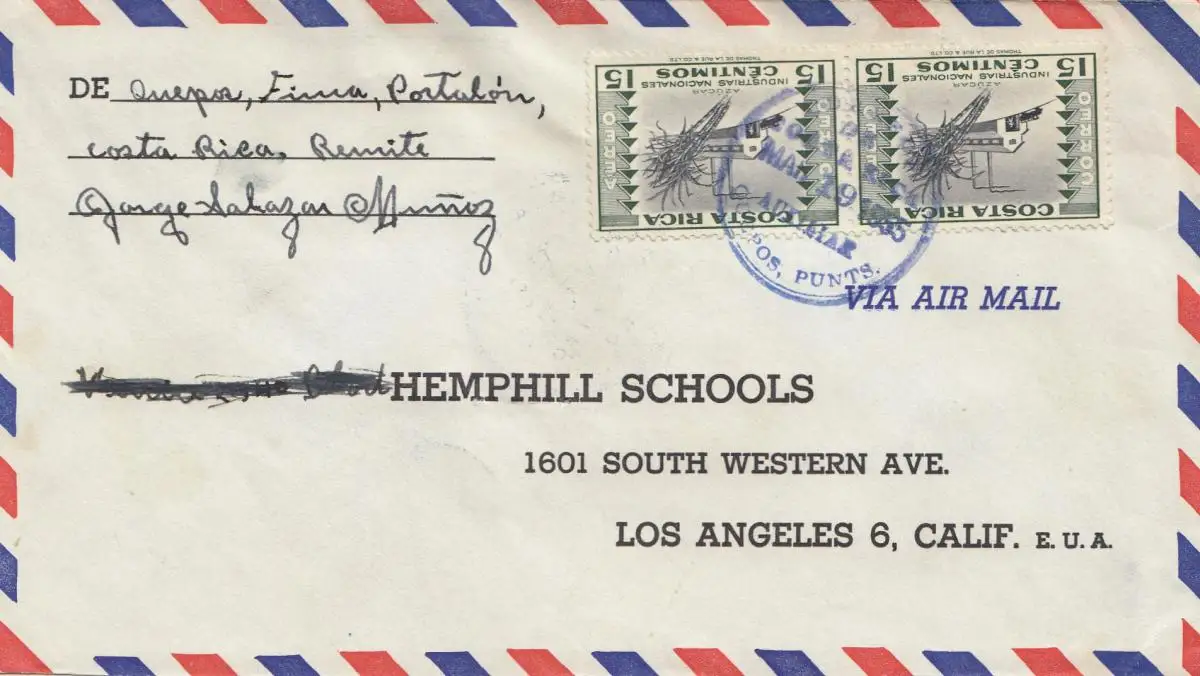 DE Quepos, Finca, Portalón,
costa Rica, Remite
Jorge Salazar Muñoz
THOMAS DE LA RUE & CO LTD
15 CENTIMOS 15
INDUSTRIAS NACIONALES
AZUCAR
CORREOS
AEREO
COSTA RICA
THOMAS DE LA RUE & CO LTD
15 CENTIMOS 15
INDUSTRIAS NACIONALES
AZUCAR
CORREOS
AEREO
COSTA RICA
19
AUXILIAR
QUEPOS, PUNTS.
VIA AIR MAIL
HEMPHILL SCHOOLS
1601 SOUTH WESTERN AVE.
LOS ANGELES 6, CALIF. E. U. A.